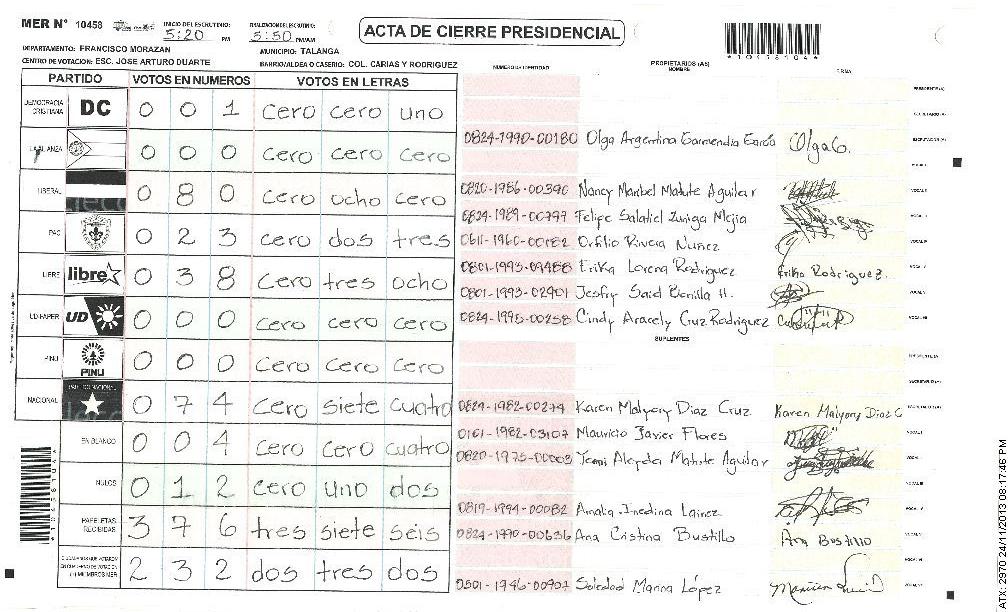 MER Nº 10458 INICIO DEL ESCRUTINIO: 5:20 PM FINALIZACION DEL ESCRUTINIO: 5:50 PM/AM ACTA DE CIERRE PRESIDENCIAL *10458104*
DEPARTAMENTO: FRANCISCO MORAZAN MUNICIPIO: TALANGA
CENTRO DE VOTACION: ESC. JOSE ARTURO DUARTE BARRIO/ALDEA O CASERIO: COL. CARIAS Y RODRIGUEZ
NUMERO DE IDENTIDAD PROPIETARIOS (AS) NOMBRE FIRMA
PARTIDO VOTOS EN NUMEROS VOTOS EN LETRAS
DEMOCRACIA CRISTIANA DC 0 0 1 cero cero uno
ALIANZA 0 0 0 cero cero cero
LIBERAL 0 8 0 cero ocho cero
PAC 0 2 3 cero dos tres
LIBRE libre 0 3 8 cero tres ocho
UD-FAPER UD 0 0 0 cero cero cero
PINU PINU 0 0 0 cero cero cero
NACIONAL PARTIDO NACIONAL 0 7 4 cero siete cuatro
EN BLANCO 0 0 4 cero cero cuatro
NULOS 0 1 2 cero uno dos
PAPELETAS RECIBIDAS 3 7 6 tres siete seis
CIUDADANOS QUE VOTARON EN CUADERNO DE VOTACION (+) MIEMBROS MER 2 3 2 dos tres dos
PRESIDENTE (A)
SECRETARIO (A)
0824-1990-00180 Olga Argentina Garmendia García Olga G. ESCRUTADOR (A)
VOCAL I
0820-1986-00390 Nancy Maribel Matute Aguilar VOCAL II
0824-1989-00777 Felipe Salatiel Zuniga Mejia
0611-1960-00182 Orfilio Rivera Nuñez
0801-1993-09488 Erika Lorena Rodriguez Erika Rodriguez.
0801-1993-02901 Jesfry Said Bonilla H.
0824-1995-00258 Cindy Aracely Cruz Rodriguez
SUPLENTES
PRESIDENTE (A)
SECRETARIO (A)
0824-1982-00274 Karen Malyory Diaz Cruz Karen Malyory Diaz C
0101-1982-03107 Mauricio Javier Flores
0820-1975-00003 Matute Aguilar
0819-1994-00082 Amalia Lainez
0824-1990-00636 Ana Cristina Bustillo Ana Bustillo
0801-1946-00902 Soledad Marina López
*10458104*
ATX-2970 24/11/2013 08:17:46 PM